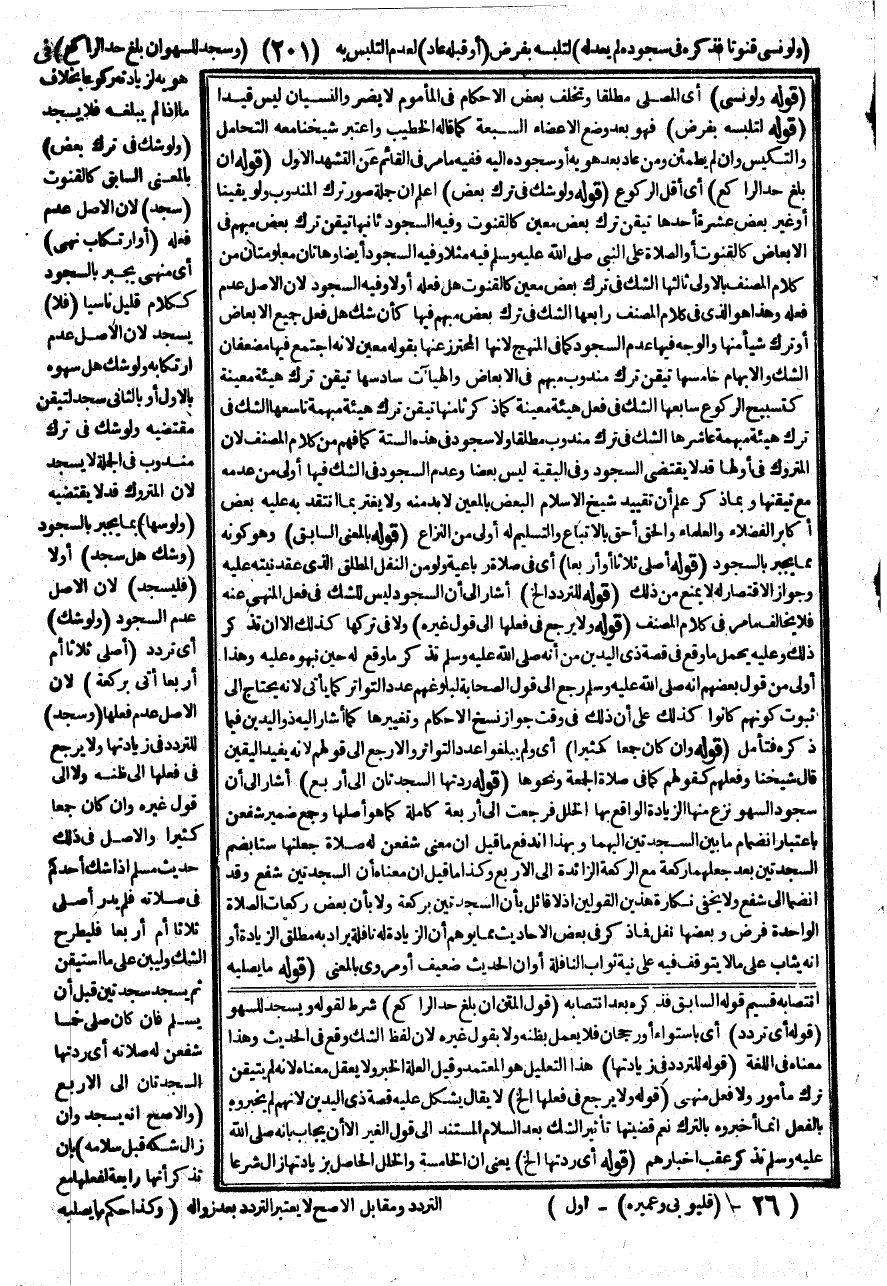 (ولو نسى قنوتا فذكره فى سجوده لم يعد له) لتلبسه بفرض (أو قبله عاد) لعدم التلبس به (٢٠١) (وسجد للسهو ان بلغ حد الراكع) فى
هويه لزيادته ركوعا بخلاف
ما اذا لم يبلغه فلا يسجد
(ولو شك فى ترك بعض)
بالمعنى السابق كالقنوت
(سجد) لان الاصل عدم
فعله (أو ارتكاب نهى)
أى منهى يجبر بالسجود
ككلام قليل ناسيا (فلا)
يسجد لان الأصل عدم
ارتكابه ولو شك هل سهوه
بالاول أو بالثانى سجد لتيقن
مقتضيه ولو شك فى ترك
مندوب فى الجملة لا يسجد
لان المتروك قد لا يقتضيه
(ولو سها) بما يجبر بالسجود
(وشك هل سجد) أولا
(فليسجد) لان الاصل
عدم السجود (ولو شك)
أى تردد (أصلى ثلاثا أم
أربعا أتى بركعة) لان
الاصل عدم فعلها (وسجد)
للتردد فى زيادتها ولا يرجع
فى فعلها الى ظنه ولا الى
قول غيره وان كان جمعا
كثيرا والاصل فى ذلك
حديث مسلم اذا شك أحدكم
فى صلاته فلم يدر أصلى
ثلاثا أم أربعا فليطرح
الشك وليبن على ما استيقن
ثم يسجد سجدتين قبل أن
يسلم فان كان صلى خمسا
شفعن له صلاته أى ردتها
السجدتان الى الاربع
(والاصح انه يسجد وان
زال شكه قبل سلامه) بان
تذكر أنها رابعة لفعلها مع
التردد ومقابل الاصح لا يعتبر التردد بعد زواله (وكذا حكم ما يصليه
(قوله ولو نسى) أى المصلى مطلقا وتخلف بعض الاحكام فى المأموم لا يضر والنسيان ليس قيدا
(قوله لتلبسه بفرض) فهو بعد وضع الاعضاء السبعة كما قاله الخطيب واعتبر شيخنا معه التحامل
والتنكيس وان لم يطمئن ومن عاد بعد هويه أو سجوده اليه ففيه ما مر فى القائم عن التشهد الاول (قوله ان
بلغ حد الراكع) أى أقل الركوع (قوله ولو شك فى ترك بعض) اعلم ان جملة صور ترك المندوب ولو يقينا
أو غير بعض عشرة أحدها تيقن ترك بعض معين كالقنوت وفيه السجود ثانيها تيقن ترك بعض مبهم فى
الابعاض كالقنوت أو الصلاة على النبى صلى الله عليه وسلم فيه مثلا وفيه السجود أيضا وهاتان معلومتان من
كلام المصنف بالاولى ثالثها الشك فى ترك بعض معين كالقنوت هل فعله أولا وفيه السجود لان الاصل عدم
فعله وهذا هو الذى فى كلام المصنف رابعها الشك فى ترك بعض مبهم فيها كأن شك هل فعل جميع الابعاض
أو ترك شيأ منها والوجه فيها عدم السجود كما فى المنهج لانها المحترز عنها بقوله معين لانه اجتمع فيها مضعفان
الشك والابهام خامسها تيقن ترك مندوب مبهم فى الابعاض والهيآت سادسها تيقن ترك هيئة معينة
كتسبيح الركوع سابعها الشك فى فعل هيئة معينة كما ذكر ثامنها تيقن ترك هيئة مبهمة تاسعها الشك فى
ترك هيئة مبهمة عاشرها الشك فى ترك مندوب مطلقا ولا سجود فى هذه الستة كما فهم من كلام المصنف لان
المتروك فى أولها قد لا يقتضى السجود وفى البقية ليس بعضا وعدم السجود فى الشك فيها أولى من عدمه
مع تيقنها وبما ذكر علم أن تقييد شيخ الاسلام البعض بالمعين لا بد منه ولا يغتر بما انتقد به عليه بعض
أكابر الفضلاء والعلماء والحق أحق بالاتباع والتسليم له أولى من النزاع (قوله بالمعنى السابق) وهو كونه
مما يجبر بالسجود (قوله أصلى ثلاثا أو أربعا) أى فى صلاة رباعية ولو من النفل المطلق الذى عقد نيته عليه
وجواز الاقتصار له لا يمنع من ذلك (قوله للتردد الخ) أشار الى أن السجود ليس للشك فى فعل المنهى عنه
فلا يخالف ما مر فى كلام المصنف (قوله ولا يرجع فى فعلها الى قول غيره) ولا فى تركها كذلك الا ان تذكر
ذلك وعليه يحمل ما وقع فى قصة ذى اليدين من أنه صلى الله عليه وسلم تذكر ما وقع له حين نبهوه عليه وهذا
أولى من قول بعضهم انه صلى الله عليه وسلم رجع الى قول الصحابة لبلوغهم عدد التواتر كما يأتى لانه يحتاج الى
ثبوت كونهم كانوا كذلك على أن ذلك فى وقت جواز نسخ الاحكام وتغييرها كما أشار اليه ذو اليدين فيما
ذكره فتأمل (قوله وان كان جمعا كثيرا) أى ولم يبلغوا عدد التواتر والا رجع الى قولهم لانه يفيد اليقين
قال شيخنا وفعلهم كقولهم كما فى صلاة الجمعة ونحوها (قوله ردتها السجدتان الى أربع) أشار الى أن
سجود السهو نزع منها الزيادة الواقع بها الخلل فرجعت الى أربعة كاملة كما هو أصلها وجمع ضمير شفعن
باعتبار انضمام ما بين السجدتين اليهما وبهذا اندفع ما قيل ان معنى شفعن له صلاة جعلتها ستا بضم
السجدتين بعد جعلهما ركعة مع الركعة الزائدة الى الاربع وكذا ما قيل ان معناه أن السجدتين شفع وقد
انضما الى شفع ولا يخفى نكارة هذين القولين اذ لا قائل بأن السجدتين بركعة ولا بأن بعض ركعات الصلاة
الواحدة فرض وبعضها نفل فما ذكر فى بعض الاحاديث مما يوهم أن الزيادة له نافلة يراد به مطلق الزيادة أو
انه يثاب على مالا يتوقف فيه على نية ثواب النافلة أو ان الحديث ضعيف أو مروى بالمعنى (قوله ما يصليه
انتصابه قسيم قوله السابق فذكره بعد انتصابه (قول المتن ان بلغ حد الراكع) شرط لقوله ويسجد للسهو
(قوله أى تردد) أى باستواء أو رجحان فلا يعمل بظنه ولا بقول غيره لان لفظ الشك وقع فى الحديث وهذا
معناه فى اللغة (قوله للتردد فى زيادتها) هذا التعليل هو المعتمد وقيل العلة الخبر ولا يعقل معناه لانه لم يتيقن
ترك مأمور ولا فعل منهى (قوله ولا يرجع فى فعلها الخ) لا يقال يشكل عليه قصة ذى اليدين لانهم لم يخبروه
بالفعل انما أخبروه بالترك نعم قضيتها تأثير الشك بعد السلام المستند الى قول الغير الا أن يجاب بانه صلى الله
عليه وسلم تذكر عقب اخبارهم (قوله أى ردتها الخ) يعنى ان الخامسة والخلل الحاصل بزيادتها زال شرعا
(٢٦ - (قليوبى وعميره) - اول)